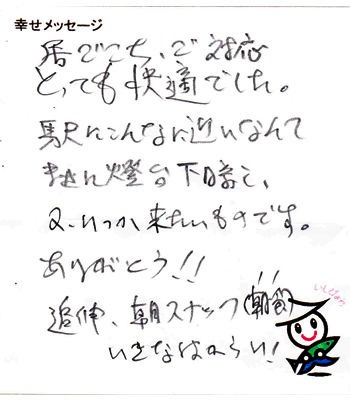 幸せメッセージ
居ごこち、ご対応
とっても快適でした。
駅にこんなに近いなんて
まさに燈台下暗し、
又いつか来たいものです。
ありがとう!!
追伸、朝スナック(朝食)
いきなはからい!